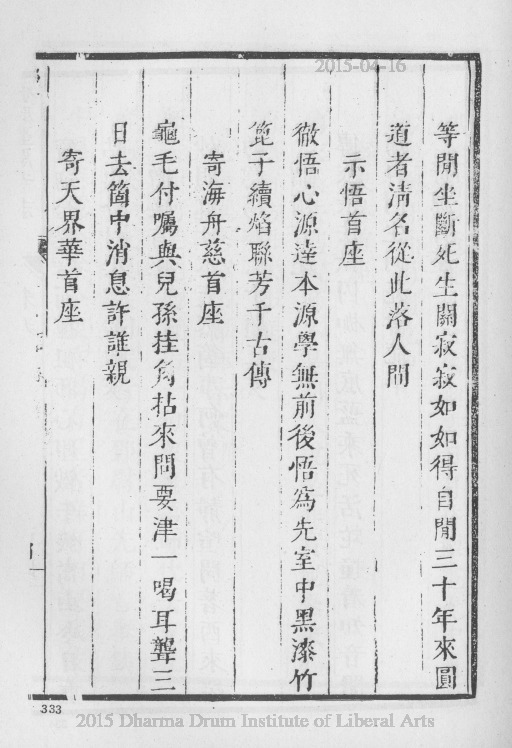 2015-04-16
等閒坐斷死生關寂寂如如得自閒三十年來圓
道者清名從此落人間
示悟首座
徹悟心源達本源學無前後悟為先室中黑漆竹
篦子續焰聯芳千古傳
寄海舟慈首座
龜毛付囑與兒孫挂角拈來問要津一喝耳聾三
日去箇中消息許誰親
寄天界華首座
333
2015 Dharma Drum Institute of Liberal Arts